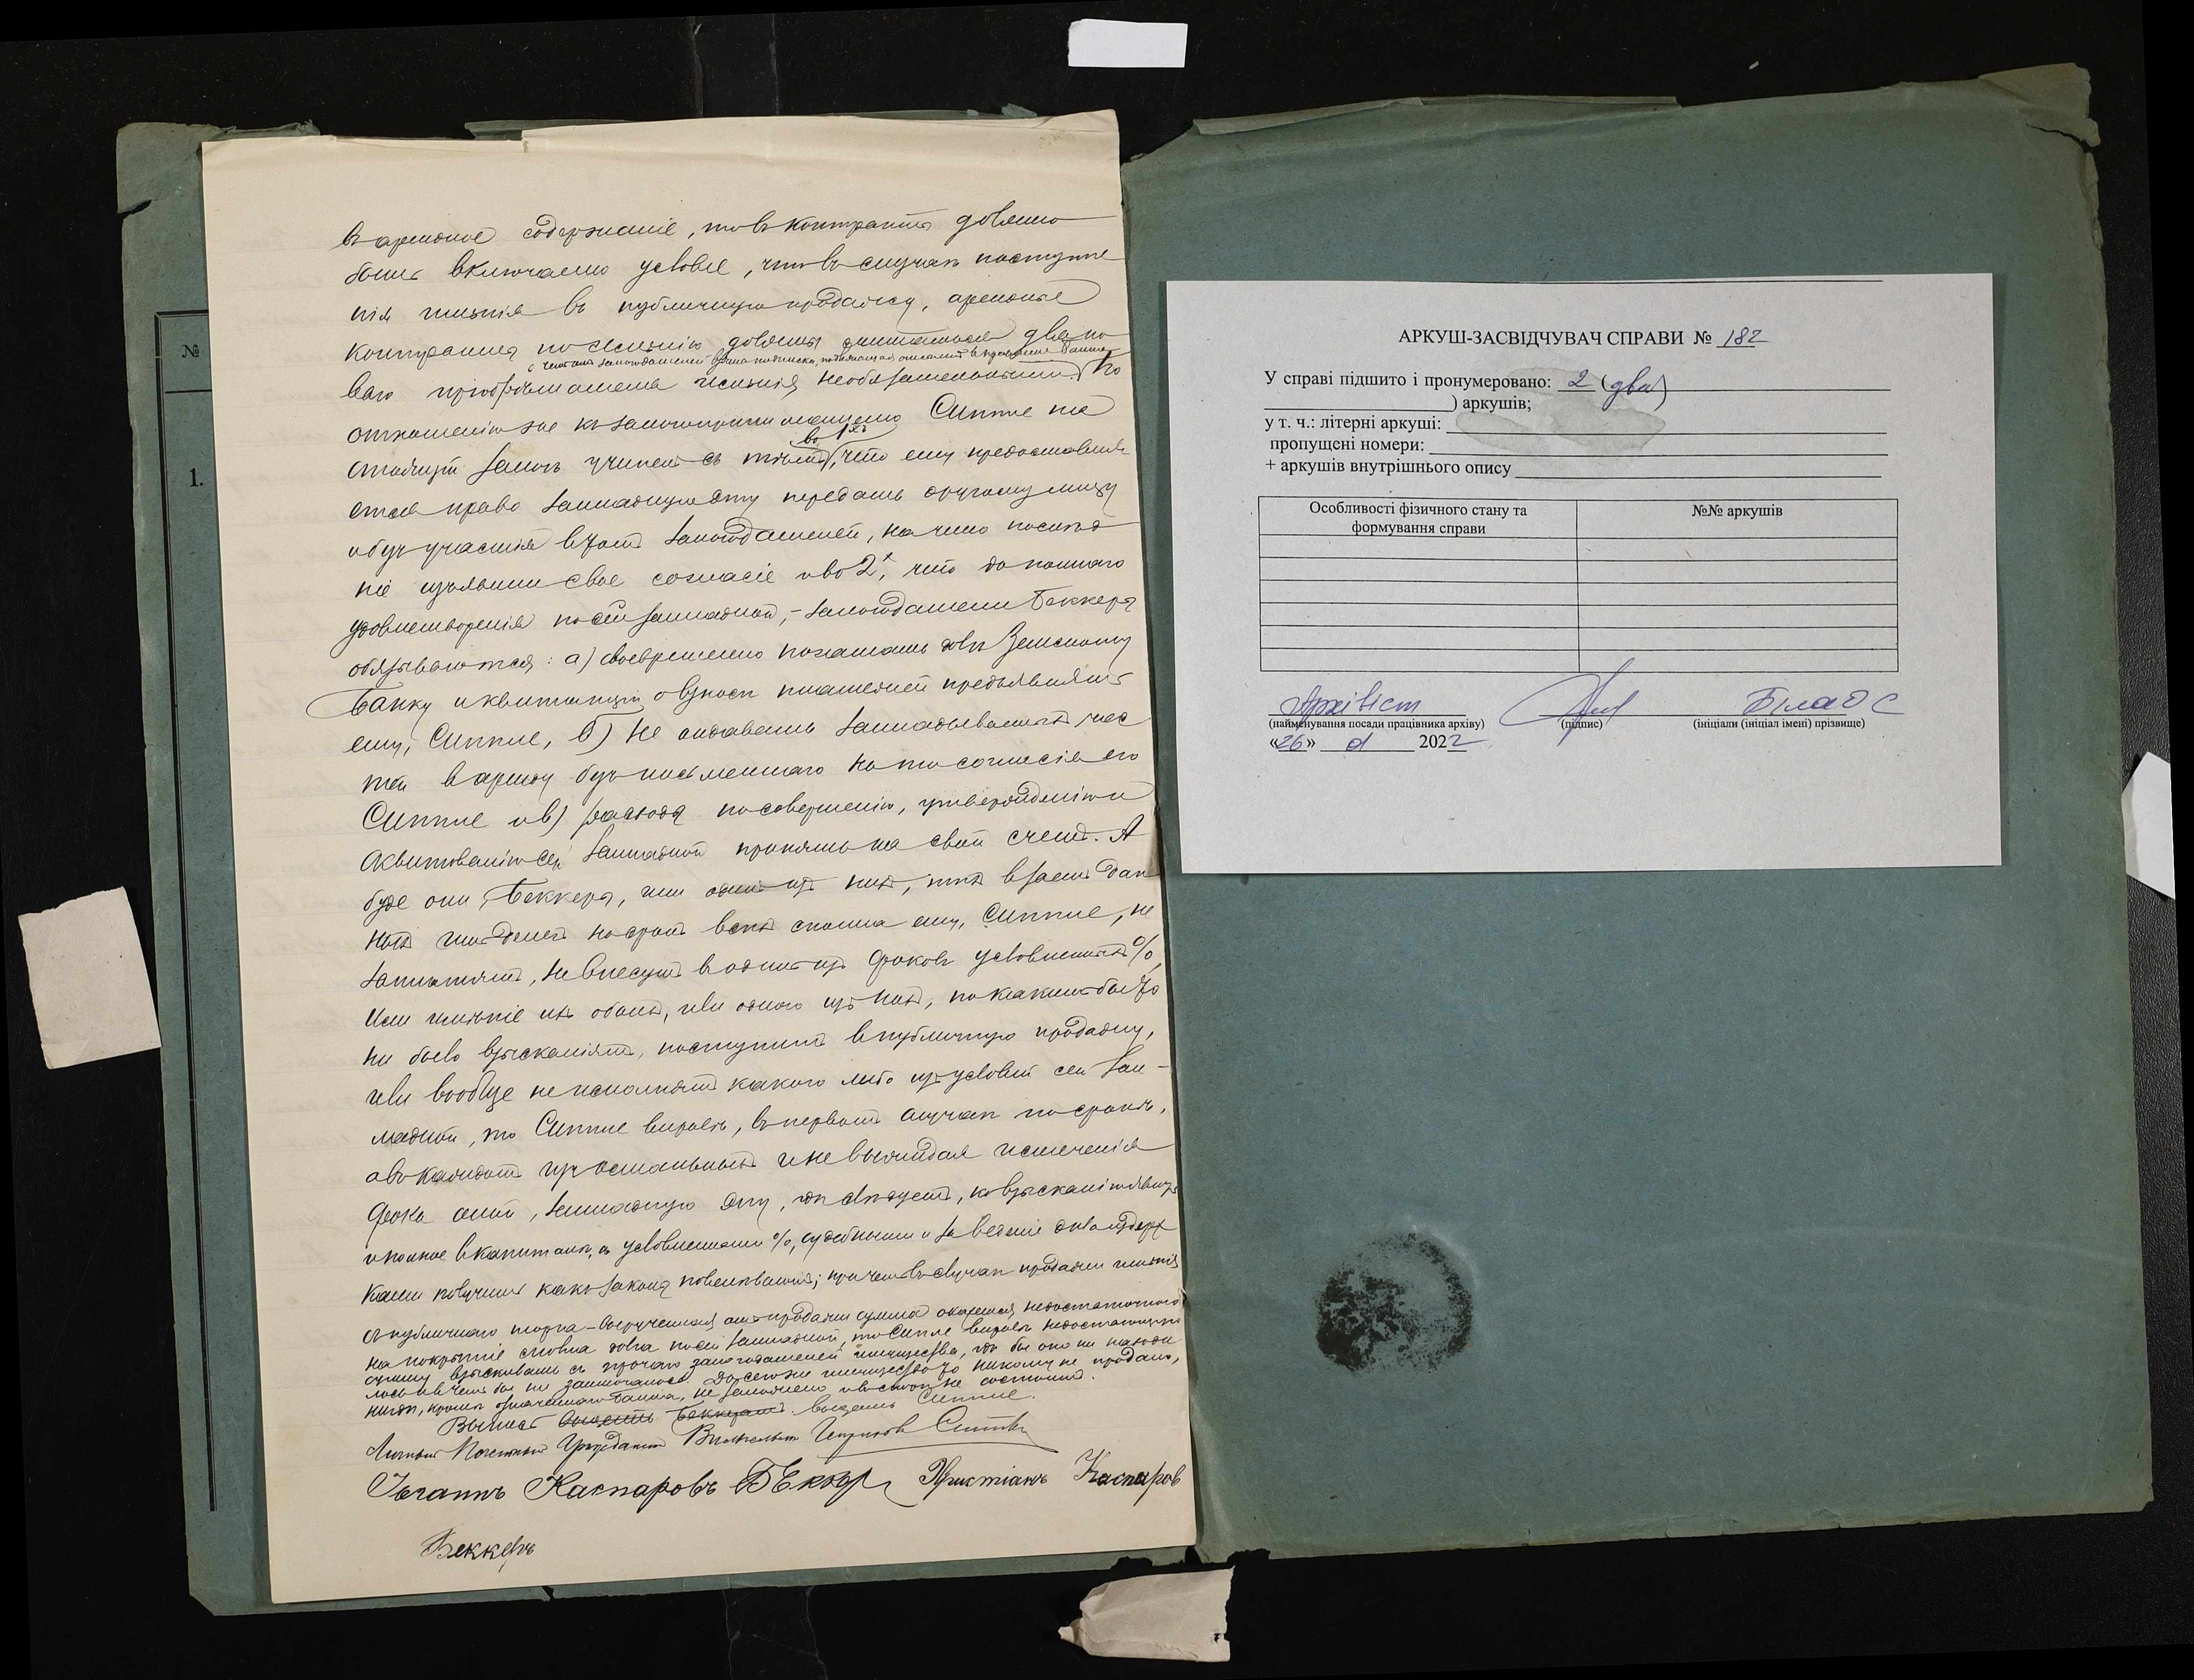 въ арендное содержаніе, то въ контрактъ должно
быть включаемо условіе, что въ случаѣ поступле
нія имѣнія въ публичную продажу, арендные
контракты по имѣнію должны считаться для но
ваго пріобрѣтателя имѣнія необязательными. По
отношенію же къ залогопринимателю Сиппле на
во 1хъ
стоящій залогъ учиненъ съ тѣмъ, что ему предоставля
ется право закладную эту передать другому лицу
и безъ участія въ томъ залогодателей, на что послѣд
ніе изъявили свое согласіе и во 2х, что до полнаго
удовлетворенія по сей закладной, - залогодатели Беккеръ
обязываются: а) своевременно погашать долгъ Земскому
Банку и квитанціи о взносѣ платежей предъявлять
ему, Сиппле, б) не отдавать закладываемыхъ час
тей въ аренду безъ письменнаго на то согласія его
Сиппле и в) расходы по совершенію, утвержденію и
сквитованію сей закладной принять на свой счетъ. А
буде они, Беккеръ, или одинъ изъ нихъ, тѣхъ взаемъ дан
ныхъ имъ денегъ на срокъ всѣхъ сполна ему, Сиппле, не
заплатятъ, не внесутъ въ одинъ изъ сроковъ условленныхъ %,
или имѣніе ихъ обоихъ, или одного изъ нихъ, по какимъ бы то
ни было взысканіямъ, поступитъ въ публичную продажу,
или вообще не исполнятъ какого либо изъ условій сей зак-
ладной, то Сиппле вправѣ, въ первомъ случаѣ по срокѣ,
а въ каждомъ изъ остальныхъ и не выжидая истеченія
срока оной, закладную эту, гдѣ слѣдуетъ, ко взысканію явить
и полное въ капиталѣ, съ условленными %, судебными и за веденіе дѣла издерж
ками получить какъ законы повелѣваютъ; при чемъ въ случаѣ продажи имѣнія
съ публичнаго торга - вырученная отъ продажи сумма окажется недостаточною
на покрытіе сполна долга по сей закладной, то Сиппле вправѣ недостающую
сумму взыскивать съ прочаго залогодателей имущества, гдѣ бы оно ни находи
лось и въ чемъ бы ни заключалось. До сего же имущество то никому не продано,
нигдѣ, кромѣ означеннаго Банка, не заложено и въ спорѣ не состоитъ.
Сиппле.
Личный Почетный Гражданинъ Вильгельмъ
Іоганъ Каспаровъ БЕккеръ Христіанъ Каспаров
Беккеръ
№
1.
АРКУШ-ЗАСВІДЧУВАЧ СПРАВИ № 182
У справі підшито і пронумеровано: 2 (два)
) аркушів;
у т. ч.: літерні аркуші:
пропущені номери:
+ аркушів внутрішнього опису
Особливості фізичного стану та формування справи
№№ аркушів
Архівіст
(найменування посади працівника архіву) (підпис) (ініціали (ініціал імені) прізвище)
«26» 2022